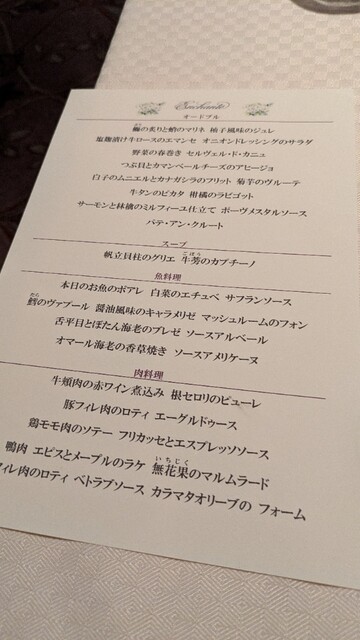 Enchanté
オードブル
鰤の炙りと蛸のマリネ 柚子風味のジュレ
塩麹漬け牛ロースのエマンセ オニオンドレッシングのサラダ
野菜の春巻き セルヴェル・ド・カニュ
つぶ貝とカマンベールチーズのアヒージョ
白子のムニエルとカナガシラのフリット 菊芋のヴルーテ
牛タンのピカタ 柑橘のラビゴット
サーモンと林檎のミルフィーユ仕立て ポーヴメスタルソース
パテ・アン・クルート
スープ
帆立貝柱のグリエ 牛蒡のカプチーノ
ごぼう
魚料理
本日のお魚のポアレ 白菜のエチュベ サフランソース
たら
鱈のヴァプール 醤油風味のキャラメリゼ マッシュルームのフォン
舌平目とぼたん海老のブレゼ ソースアルベール
オマール海老の香草焼き ソースアメリケーヌ
肉料理
牛頬肉の赤ワイン煮込み 根セロリのピューレ
豚フィレ肉のロティ エーグルドゥース
鶏モモ肉のソテー フリカッセとエスプレッソソース
いちじく
鴨肉 エピスとメープルのラケ 無花果のマルムラード
フィレ肉のロティ ベトラブソース カラマタオリーブの フォーム